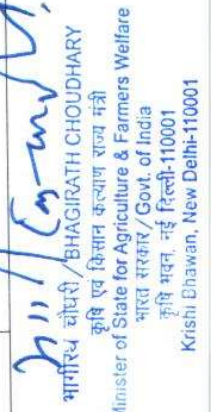 भागीरथ चौधरी/BHAGIRATH CHOUDHARY
कृषि एवं किसान कल्याण राज्य मंत्री
Minister of State for Agriculture & Farmers Welfare
भारत सरकार/Govt. of India
कृषि भवन, नई दिल्ली-110001
Krishi Bhawan, New Delhi-110001